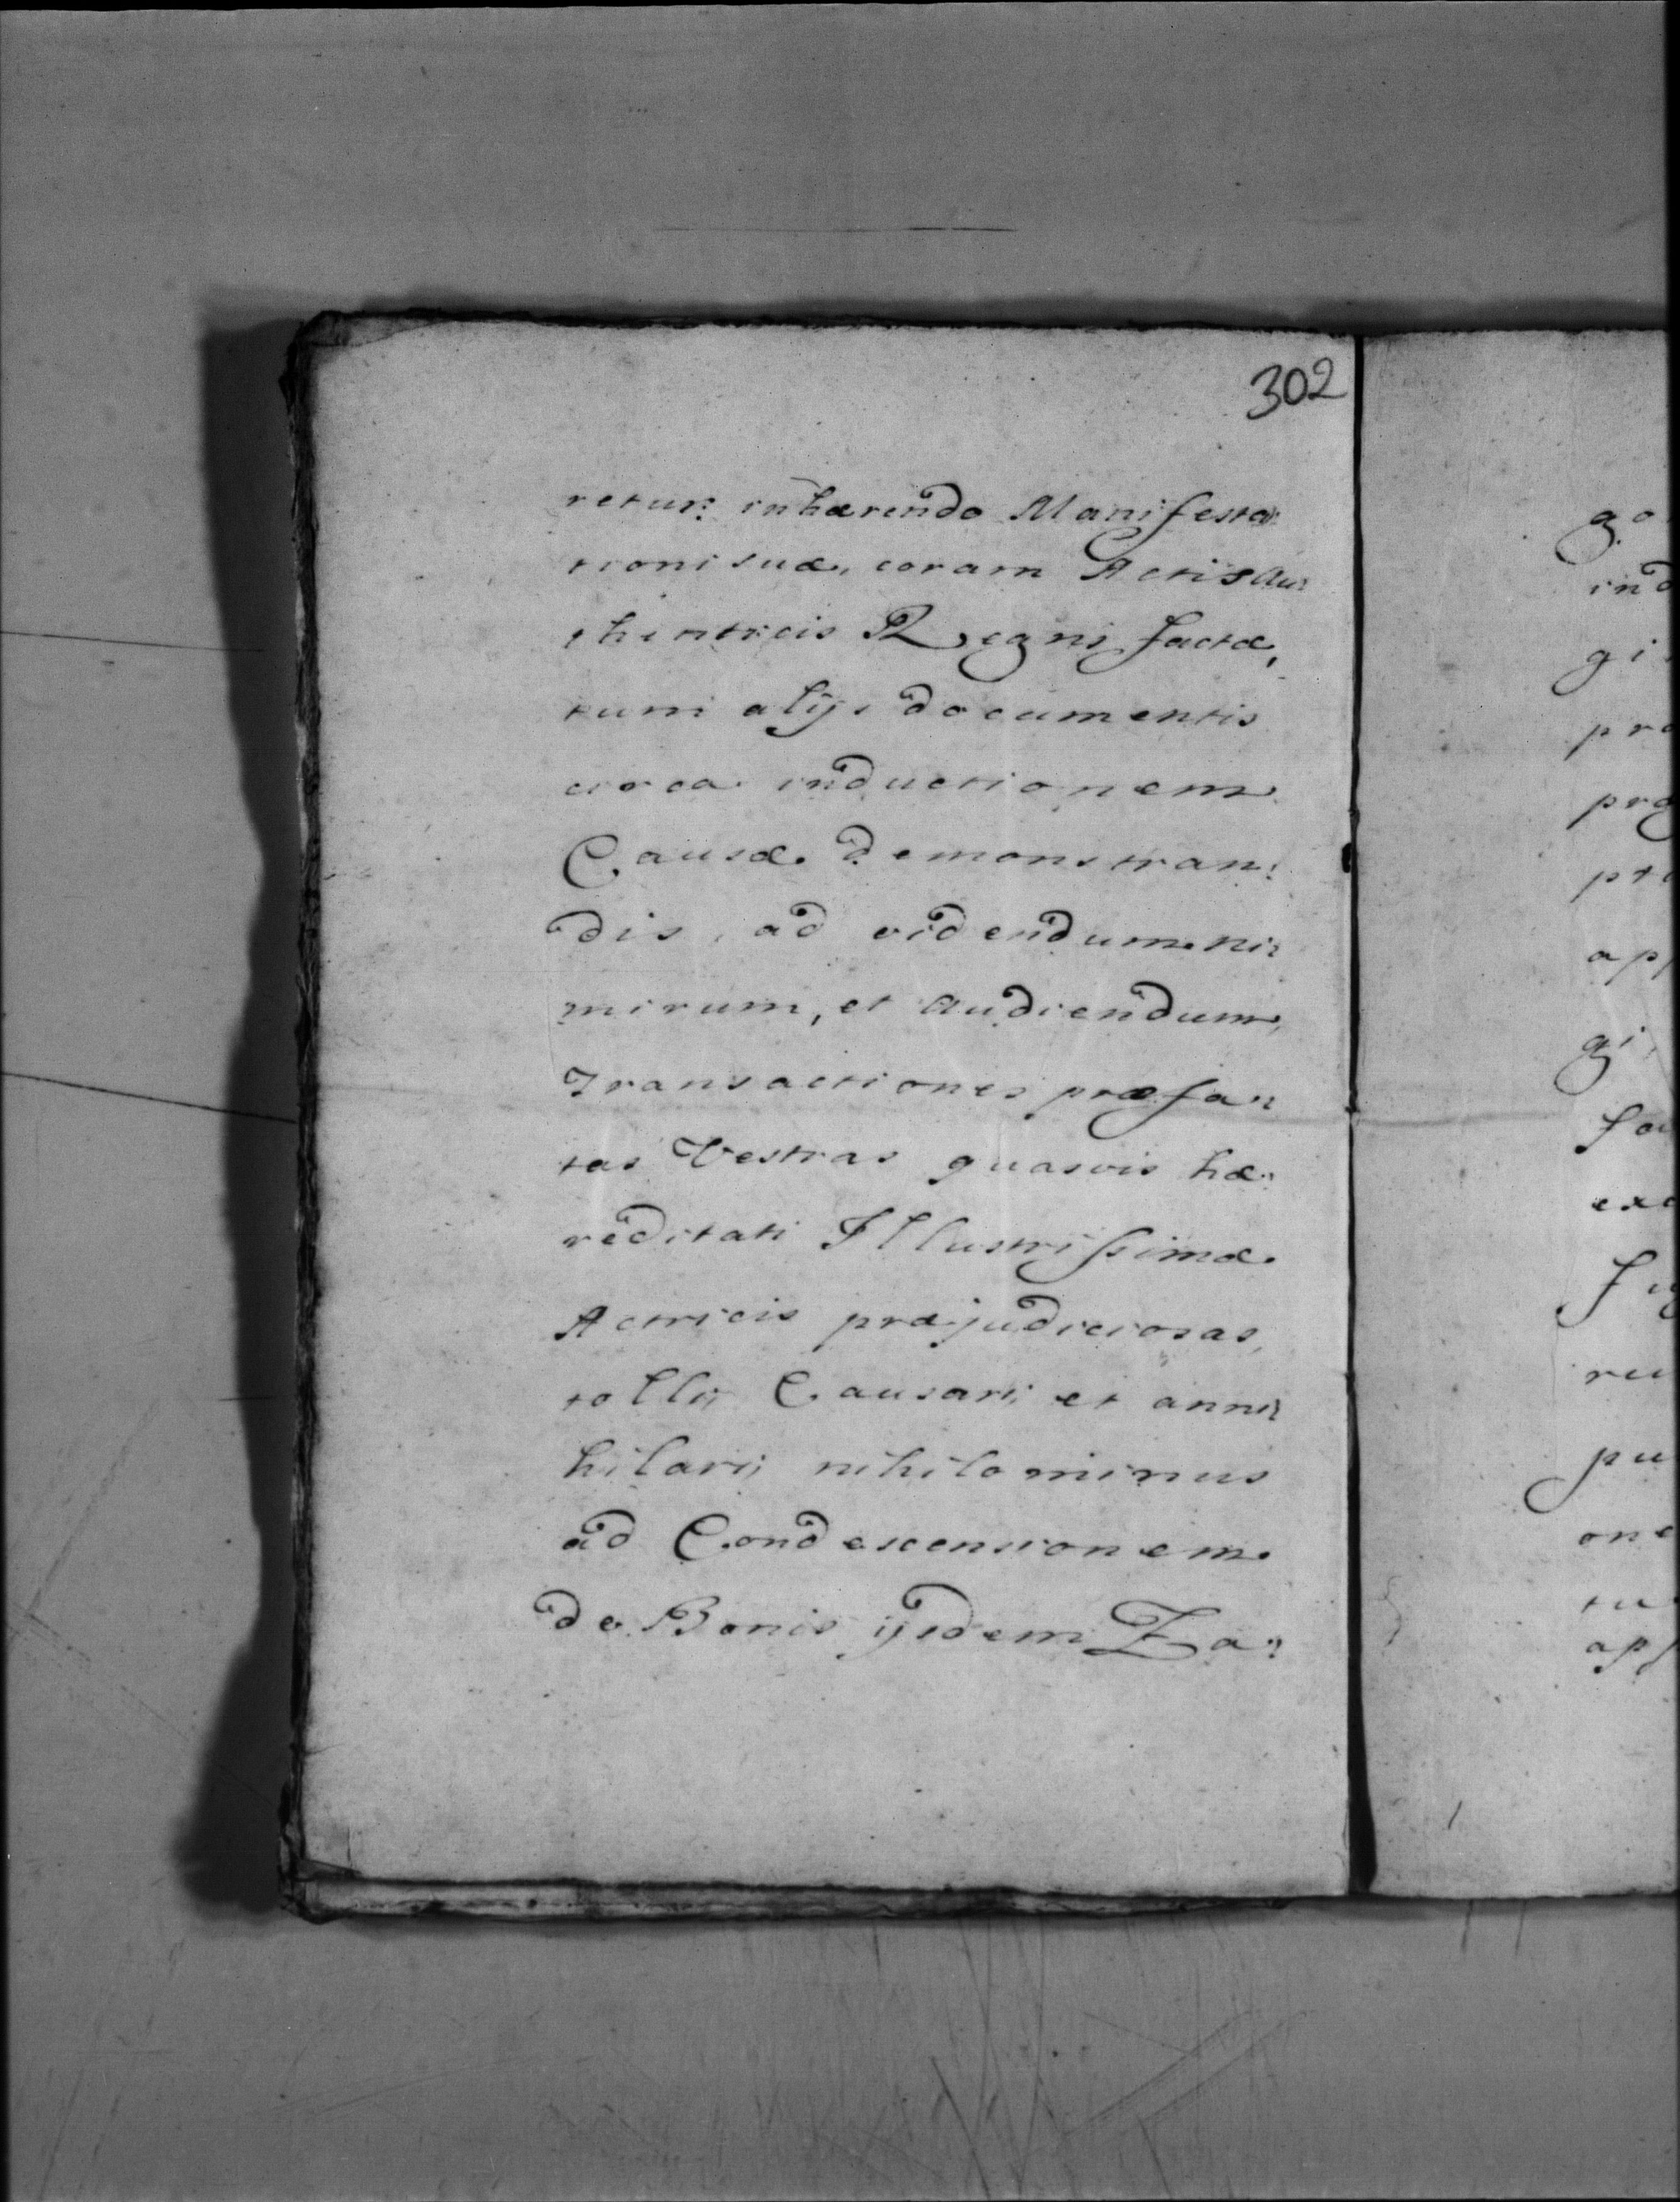 302
retur: inhærendo Manifesta:
tioni suæ, coram Actis Au:
thenticis Regni factæ,
tum alijs documentis
circa inductionem
Causæ demonstran:
dis, ad videndum ni:
mirum, et audiendum,
Transactiones præfa:
tas Vestras quasvis hæ:
reditati Illustrissimæ
Actricis præjudiciosas,
tolli, Causari, et anni:
hilari, nihilominus
ad Condescensionem
de Bonis ijsdem Za:
go
ind
gi
pro
pro
ap
gi
fa
exc
ru
pu
one
tu
app